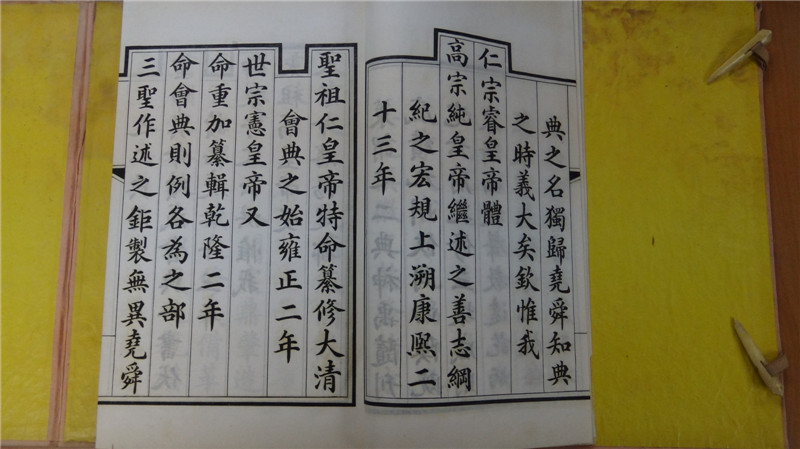 典之名獨歸堯舜知典
之時義大矣欽惟我
仁宗睿皇帝體
高宗純皇帝繼述之善志綱
紀之宏規上溯康熙二
十三年
聖祖仁皇帝特命纂修大清
會典之始雍正二年
世宗憲皇帝又
命重加纂輯乾隆二年
命會典則例各為之部
三聖作述之鉅製無異堯舜